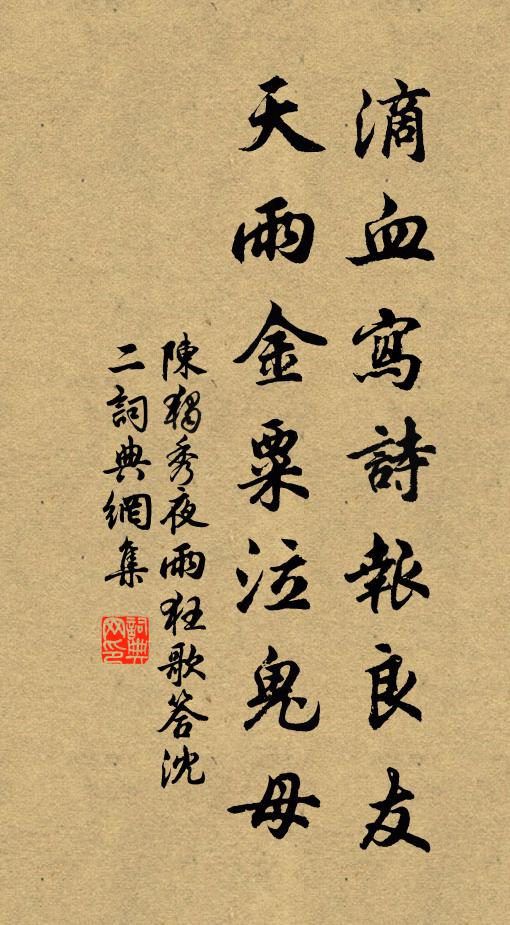 滴血寫詩報良友
天雨金粟泣鬼母
陳獨秀夜雨狂歌答沈
二詞典網集
詞典网印